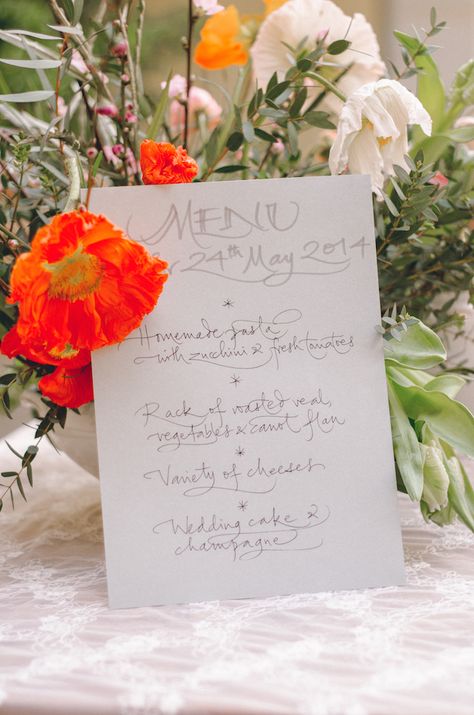 MENU
for 24th May 2014
*
Homemade pasta
with zucchini & fresh tomatoes
*
Rack of roasted veal,
vegetables & carrot flan
*
Variety of cheeses
*
Wedding cake &
champagne